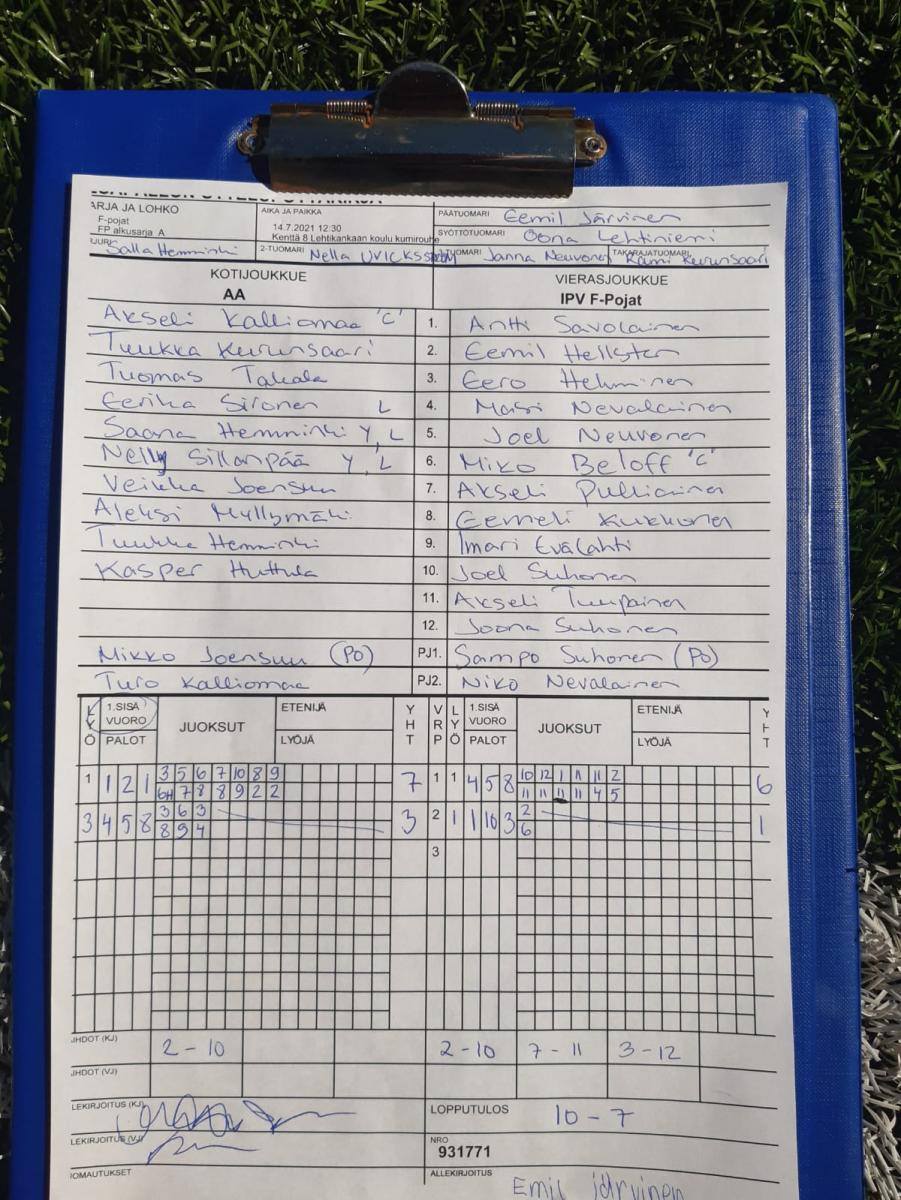 ARJA JA LOHKO
F-pojat
FP alkusarja A
AIKA JA PAIKKA
14.7.2021 12:30
Kenttä 8 Lehtikankaan koulu kumirouhe
PÄÄTUOMARI Eemil Järvinen
SYÖTTÖTUOMARI Oona Lehtiniemi
Salla Hemminki 2-TUOMARI Nella TUOMARI Janna Neuvonen TAKARAJATUOMARI Rami Kurunsaari
KOTIJOUKKUE VIERASJOUKKUE
AA IPV F-Pojat
Akseli Kalliomaa 'C' 1. Antti Savolainen
Tuukka Kurunsaari 2. Eemil Hellsten
Tuomas Takala 3. Eero Heleminen
Eerika Sironen L 4. Masi Nevalainen
Saana Hemminki Y, L 5. Joel Neuvonen
Nelly Sillanpää Y, L 6. Miko Beloff 'C'
Veikka Joensuu 7. Akseli Pulliainen
Aleksi Myllymäki 8. Eemeli Kukkonen
Tuukka Hemminki 9. Imari Evälahti
Kasper Huttula 10. Joel Suhonen
11. Akseli Tuupainen
12. Joona Suhonen
Mikko Joensuu (PO) PJ1. Sampo Suhonen (PO)
Turo Kalliomaa PJ2. Niko Nevalainen
LYÖ 1.SISÄ VUORO PALOT JUOKSUT ETENIJÄ LYÖJÄ YHT VRP LYÖ 1.SISÄ VUORO PALOT JUOKSUT ETENIJÄ LYÖJÄ YHT
3 5 6 7 10 8 9 10 12 1 11 11 2
1 1 2 1 7 1 1 4 5 8 6
6H 7 8 8 9 2 2 11 11 11 11 4 5
3 6 3 2
3 4 5 8 3 2 1 1 10 3 1
8 9 4 6
3
JHDOT (KJ) 2 - 10 2 - 10 7 - 11 3 - 12
JHDOT (VJ)
LEKIRJOITUS (KJ) LOPPUTULOS 10 - 7
LEKIRJOITUS (VJ) NRO
931771
IOMAUTUKSET ALLEKIRJOITUS Emil Järvinen